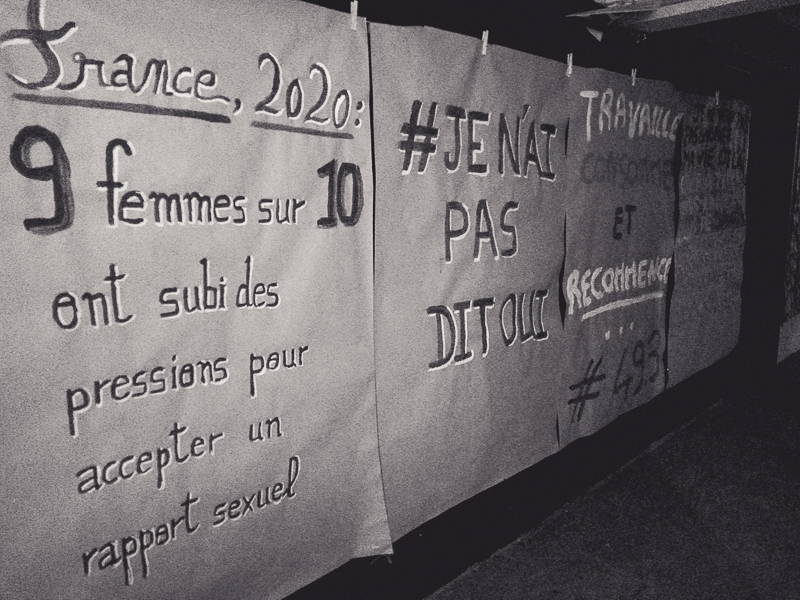 France, 2020:
9 femmes sur 10
ont subi des
pressions pour
accepter un
rapport sexuel
#JE N'AI
PAS
DIT OUI
TRAVAILLE
CONSOMME
ET
RECOMMENCE
...
#493